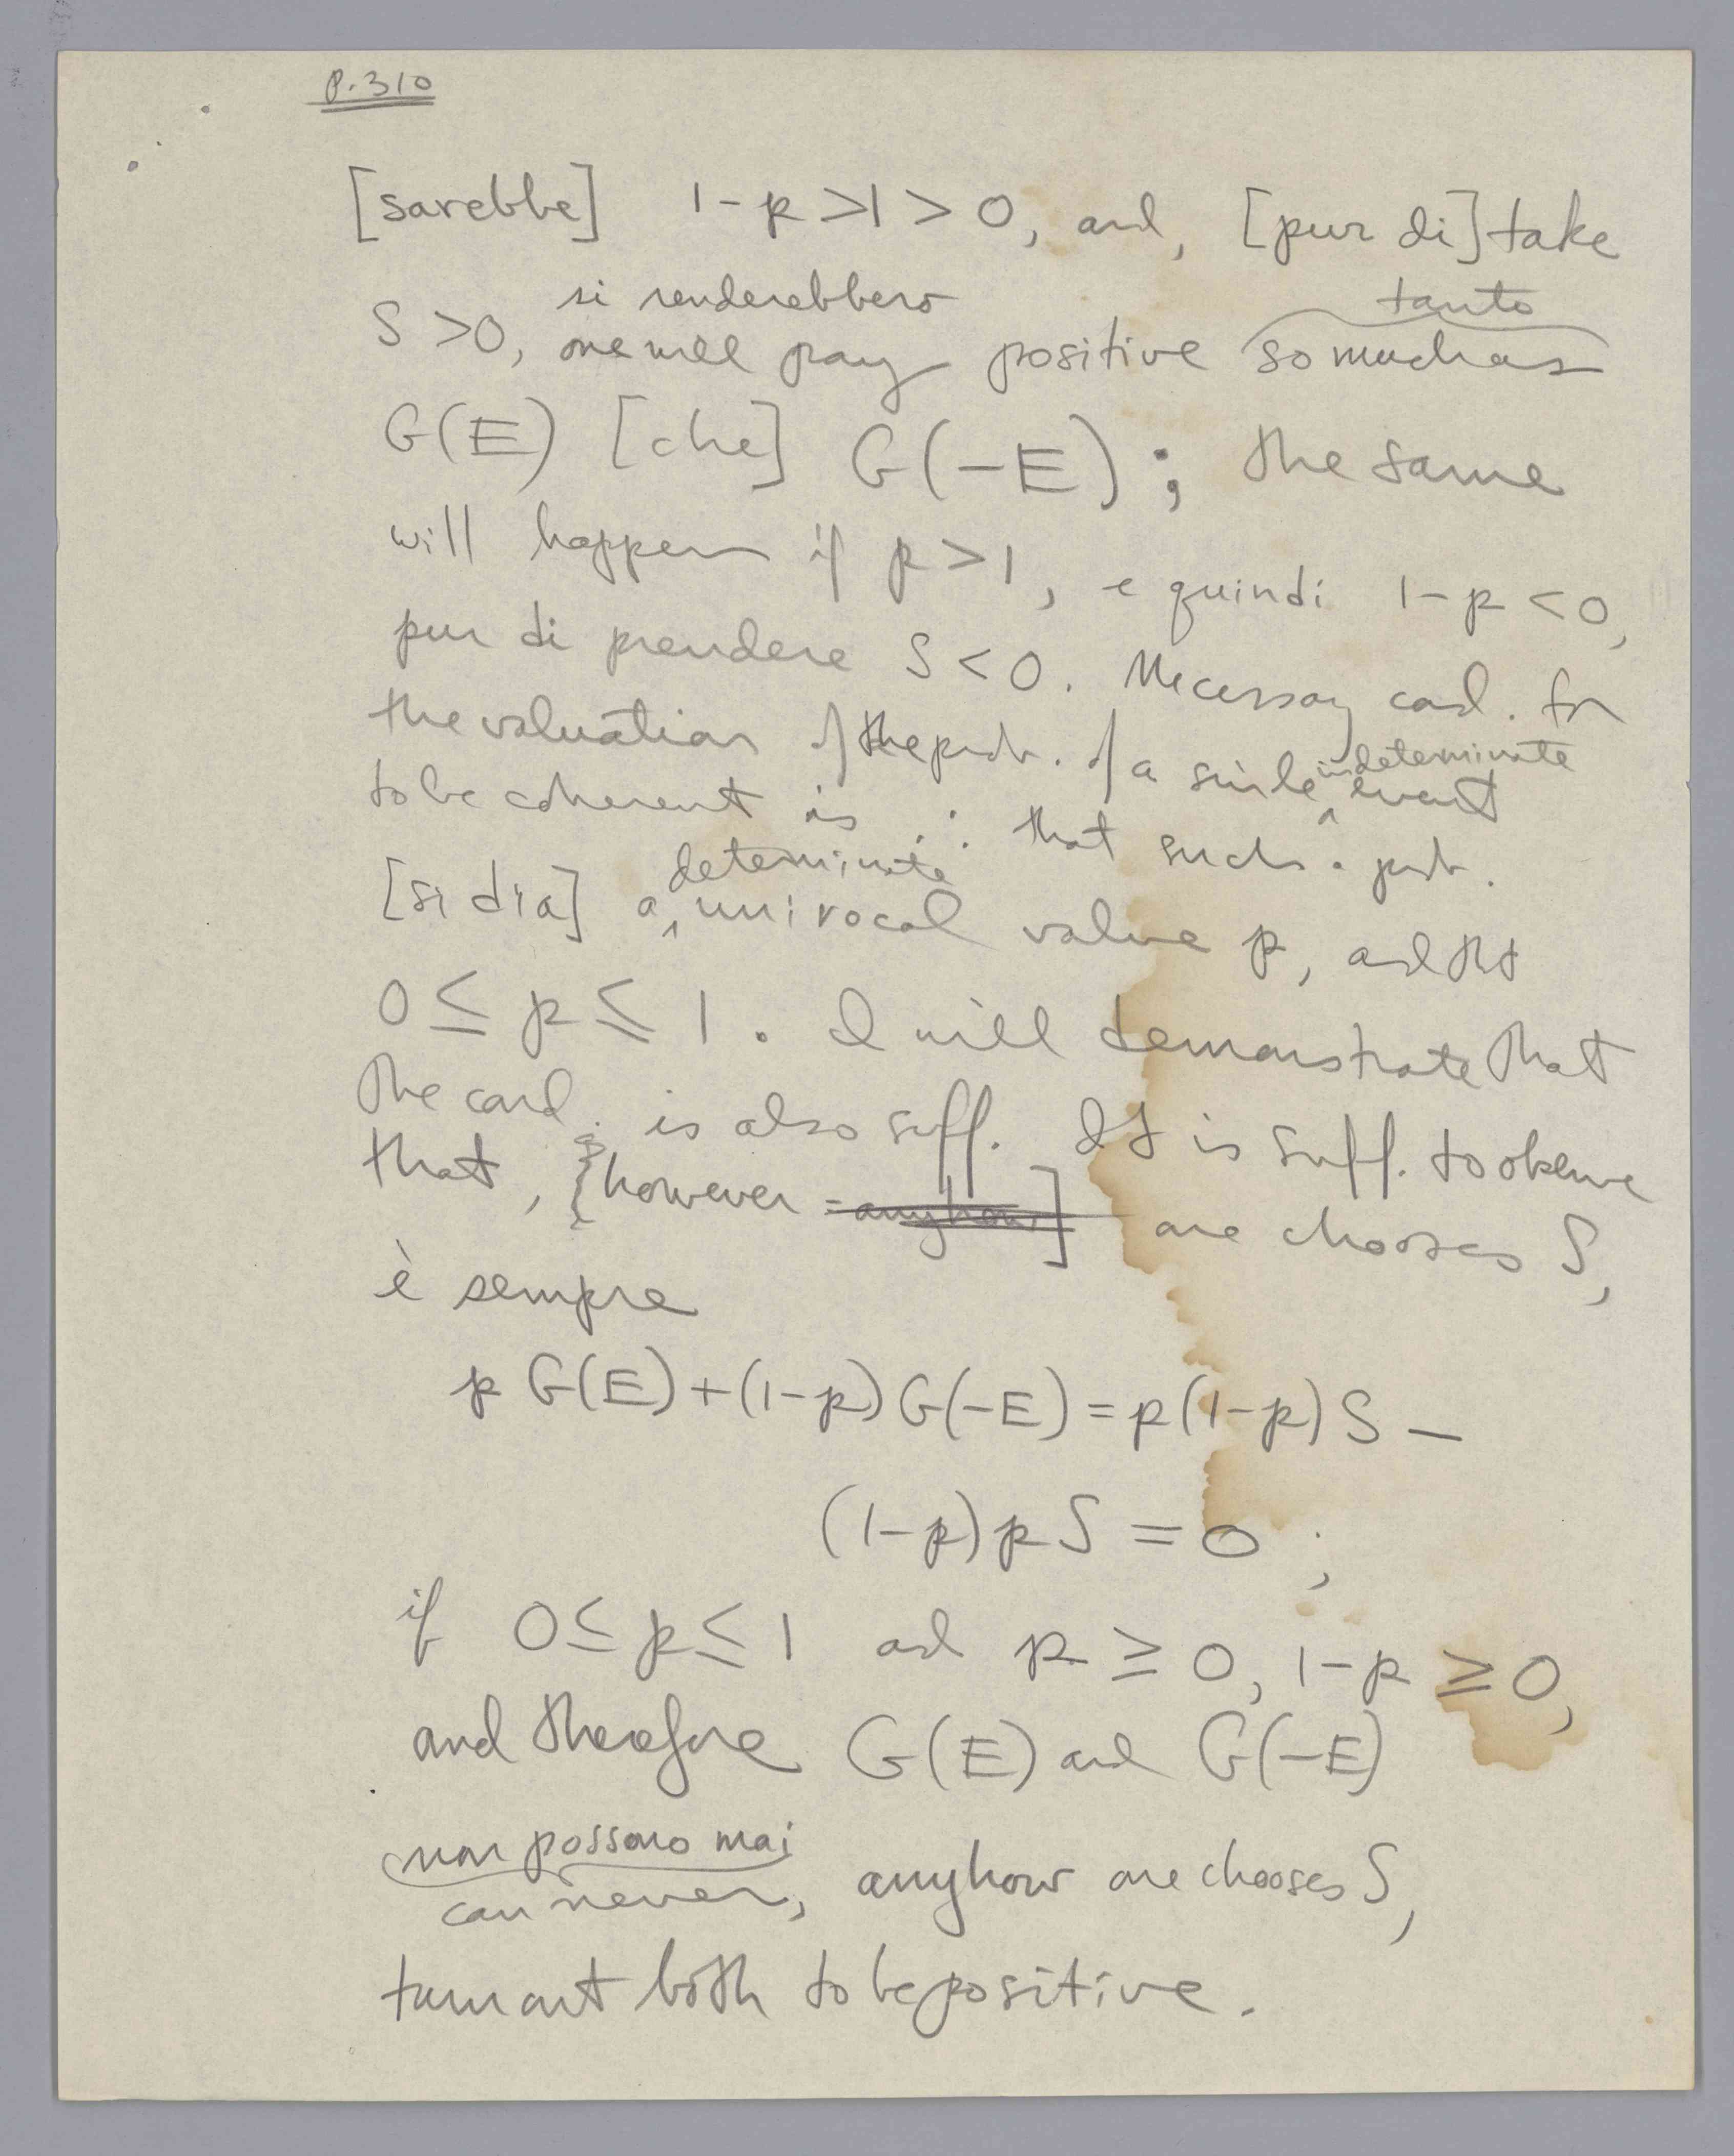 p. 310
[sarebbe] 1-p >1 > 0, and, [pur di] take
si renderebbero tanto
S >0, one will pay positive so much as
G(E) [che] G(-E) ; the same
will happen if p > 1, e quindi 1-p < 0,
pur di prendere S < 0. Necessary cond. for
the valuation of the prob. of a sinle event
indeterminate
to be coherent is ∴ that such a prob.
determinate
[si dia] a univocal value p, and tht
0 ≤ p ≤ 1. I will demonstrate that
the cond. is also suff. It is suff. to observe
that, {however = anyhow] one chooses S,
è sempre
p G(E)+(1-p)G(-E)=p(1-p)S -
(1-p)pS = 0 ;
if 0 ≤ p ≤ 1 ad p ≥ 0, 1-p ≥ 0,
and therefore G(E) and G(-E)
non possono mai
can never, anyhow one chooses S,
turn out both to be positive.